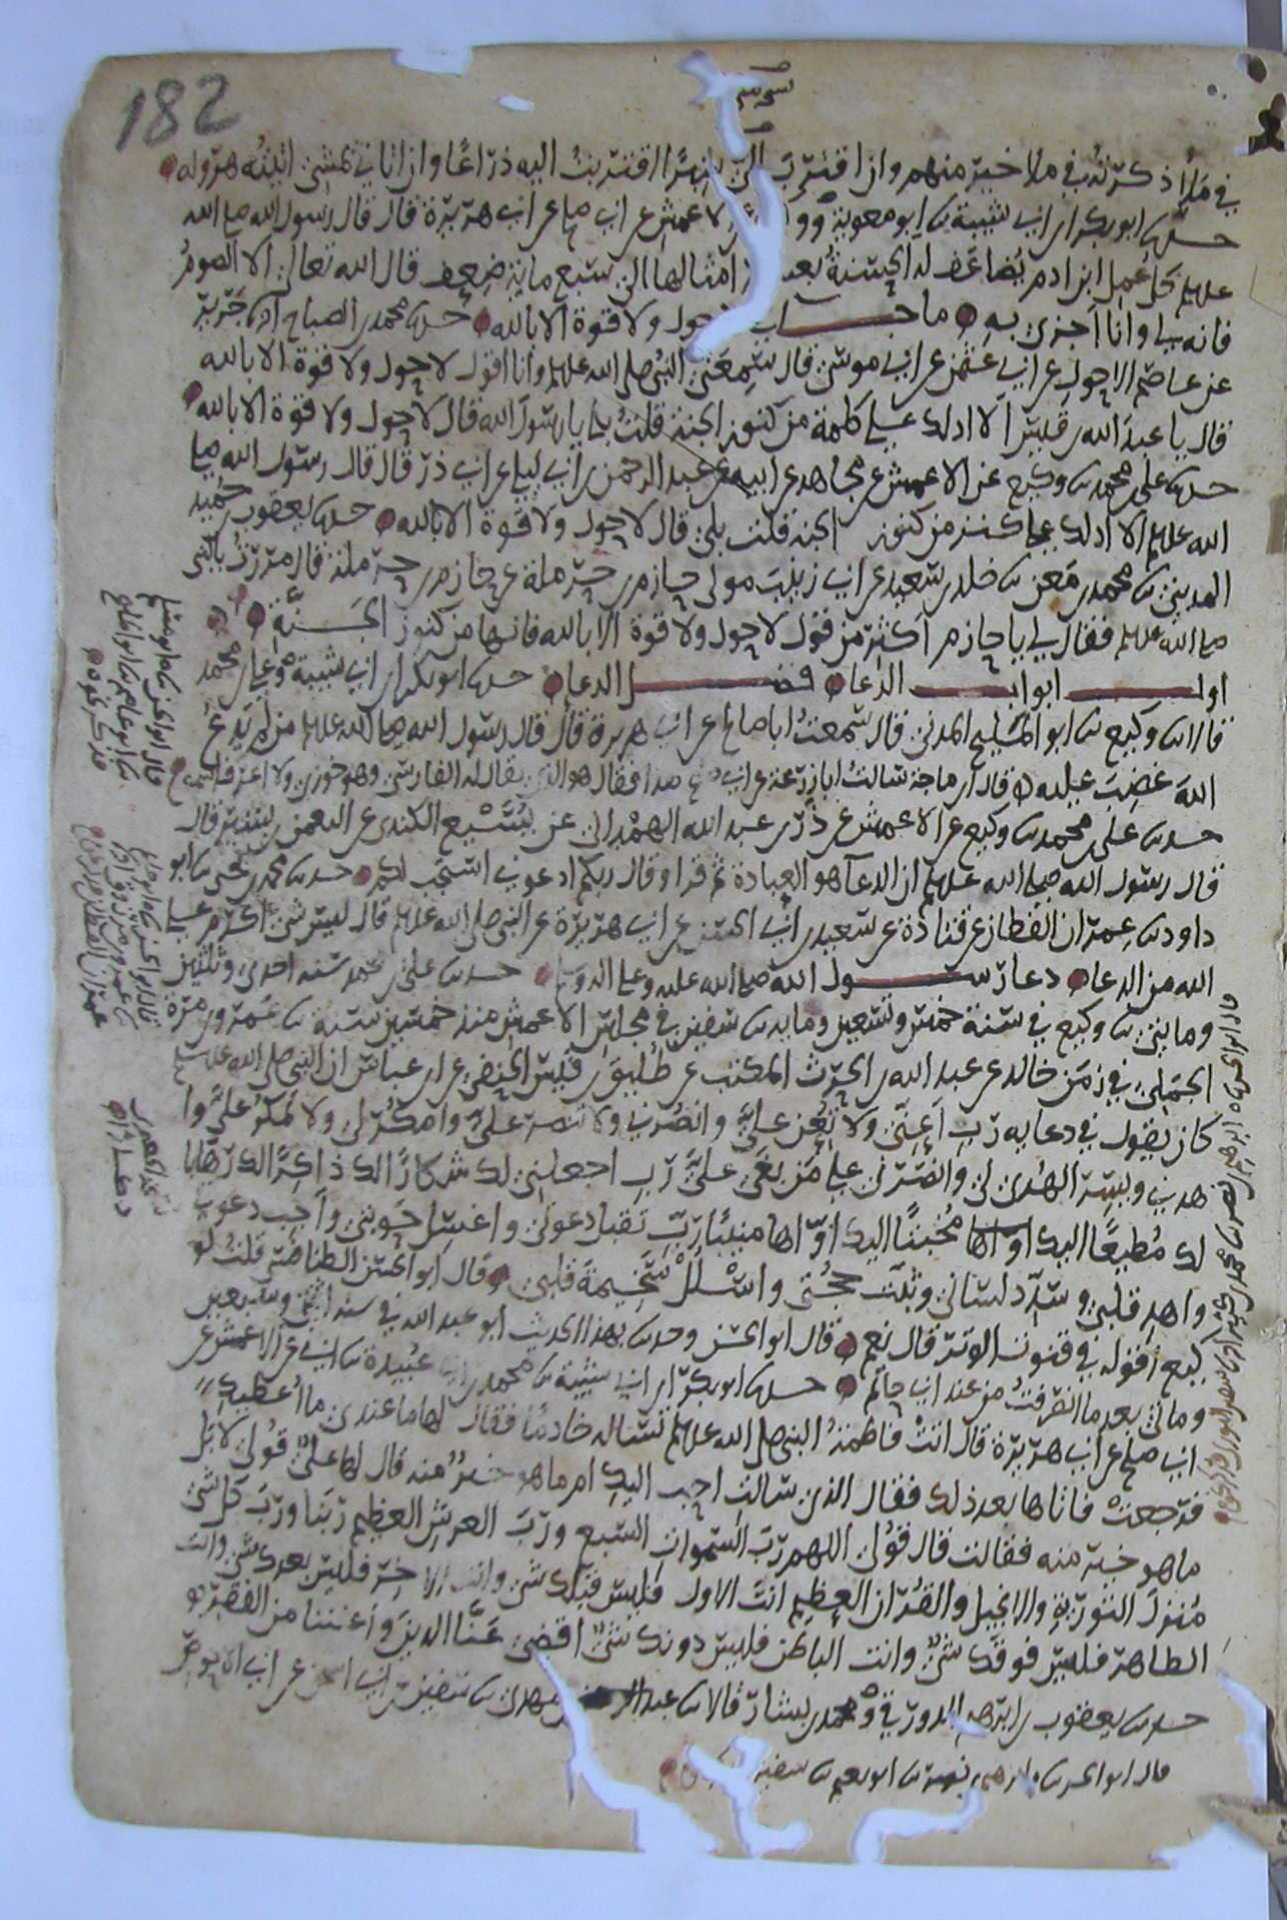 182
في ملأ ذكرته في ملأ خير منهم وان اقترب الي شبرا اقتربت اليه ذراعا وان اتاني يمشي اتيته هرولة
حدثنا ابو بكر ابن ابي شيبة ثنا ابو معوية و الاعمش عن ابي صالح عن ابي هريرة قال قال رسول الله صلى الله
عليه وسلم كل عمل ابن ادم يضاعف له الحسنة بعشر امثالها الى سبع ماية ضعف قال الله تعالى الا الصوم
فانه لي وانا اجزي به ما جا حول ولا قوة الا بالله حدثنا محمد بن الصباح انا جرير
عن عاصم الاحول عن ابي عثمن عن ابي موسى قال سمعني النبي صلى الله عليه وسلم وانا اقول لا حول ولا قوة الا بالله
قال يا عبد الله بن قيس الا ادلك على كلمة من كنوز الجنة قلت بلى يا رسول الله قال لا حول ولا قوة الا بالله
حدثنا علي بن محمد ثنا وكيع عن الاعمش عن مجاهد عن ابيه عن عبد الرحمن بن ابي ليلى عن ابي ذر قال قال رسول الله صلى
الله عليه وسلم الا ادلك على كنز من كنوز الجنة قلت بلى قال لا حول ولا قوة الا بالله حدثنا يعقوب بن حميد
المديني ثنا محمد بن معن ثنا خلد بن سعيد عن ابي زينب مولى حازم بن حرملة عن حازم بن حرملة قال مررت بالنبي
صلى الله عليه وسلم فقال لي يا حازم اكثر من قول لا حول ولا قوة الا بالله فانها من كنوز الجنة
اول ابواب الدعا فضل الدعا حدثنا ابو بكر ابن ابي شيبة وعلي بن محمد
قالا ثنا وكيع ثنا ابو المليح المدني قال سمعت ابا صالح عن ابي هريرة قال قال رسول الله صلى الله عليه وسلم من لم يدع
الله غضب عليه قال ابن ماجة سالت ابا زرعة عن ابي صالح هذا فقال هو الذي يقال له الفارسي وهو خوزي ولا اعرف اسمه
حدثنا علي بن محمد ثنا وكيع عن الاعمش عن ذر بن عبد الله الهمداني عن يسيع الكندي عن النعمن بن بشير قال
قال رسول الله صلى الله عليه وسلم ان الدعا هو العبادة ثم قرا وقال ربكم ادعوني استجب لكم حدثنا محمد بن يحيى ثنا ابو
داود ثنا عمران القطان عن قتادة عن سعيد بن ابي الحسن عن ابي هريرة عن النبي صلى الله عليه وسلم قال ليس شي اكرم على
الله من الدعا دعا رسول الله صلى الله عليه وعلى اله وسلم حدثنا علي بن محمد سنة احدى وثلثين
ومايتين ثنا وكيع في سنة خمس وتسعين وماية ثنا سفين في مجلس الاعمش منذ خمسين سنة ثنا عمرو بن مرة
الجملي في زمن خالد عن عبد الله بن الحرث المكتب عن طليق بن قيس الحنفي عن ابن عباس ان النبي صلى الله عليه وسلم
كان يقول في دعايه رب اعني ولا تعن علي وانصرني ولا تنصر علي وامكر لي ولا تمكر علي وا
هدني ويسر الهدى لي وانصرني على من بغى علي رب اجعلني لك شكارا لك ذاكرا لك رهابا
لك مطيعا اليك مخبتا اليك اواها منيبا رب تقبل دعوتي واغسل حوبتي واجب دعوتي
واهد قلبي وسدد لساني وثبت حجتي واسلل سخيمة قلبي قال ابو الحسن الطنافسي قلت لو
كيع اقوله في قنوت الوتر قال نعم قال ابو الحسن وحدثنا بهذا الحديث ابو عبد الله في سنة اثنتين وسبعين
ومايتي بعد ما انصرفت من عند ابي حاتم حدثنا ابو بكر ابن ابي شيبة ثنا محمد بن ابي عبيدة ثنا ابي عن الاعمش عن
ابي صالح عن ابي هريرة قال اتت فاطمة النبي صلى الله عليه وسلم تساله خادما فقال لها ما عندي ما اعطيك
فرجعت فاتاها بعد ذلك فقال الذي سالت احب اليك ام ما هو خير منه قال لها علي قولي لا بل
ما هو خير منه فقالت قال قولي اللهم رب السموات السبع ورب العرش العظيم ربنا ورب كل شي
منزل التورية والانجيل والقران العظيم انت الاول فليس قبلك شي وانت الاخر فليس بعدك شي وانت
الظاهر فليس فوقك شي وانت الباطن فليس دونك شي اقض عنا الدين واغننا من الفقر
حدثنا يعقوب بن ابرهيم الدورقي ومحمد بن بشار قالا ثنا عبد الرحمن بن مهدي ثنا سفين عن ابي اسحق عن ابي الاحوص
قال ابو الحسن ثنا ابرهيم بن نصر ثنا ابو نعيم ثنا سفين